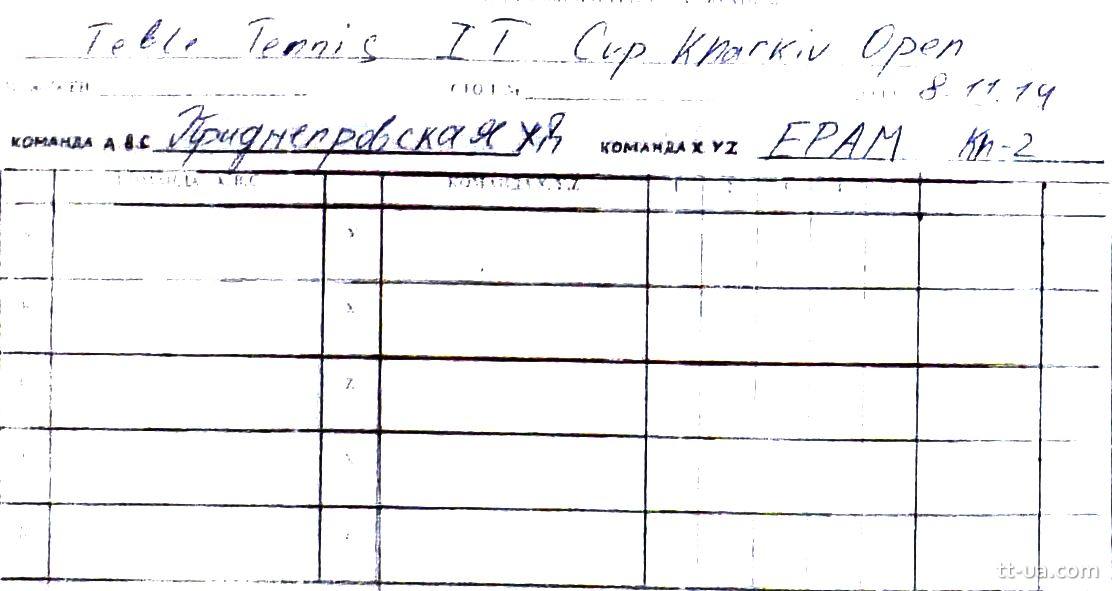 Table Tennis IT Cup Kharkiv Open
8.11.14
КОМАНДА А В С Приднепровская ЖД КОМАНДА X Y Z EPAM Кп-2
КОМАНДА А.В.С КОМАНДА X.Y.Z
Y
X
Z
tt-ua.com